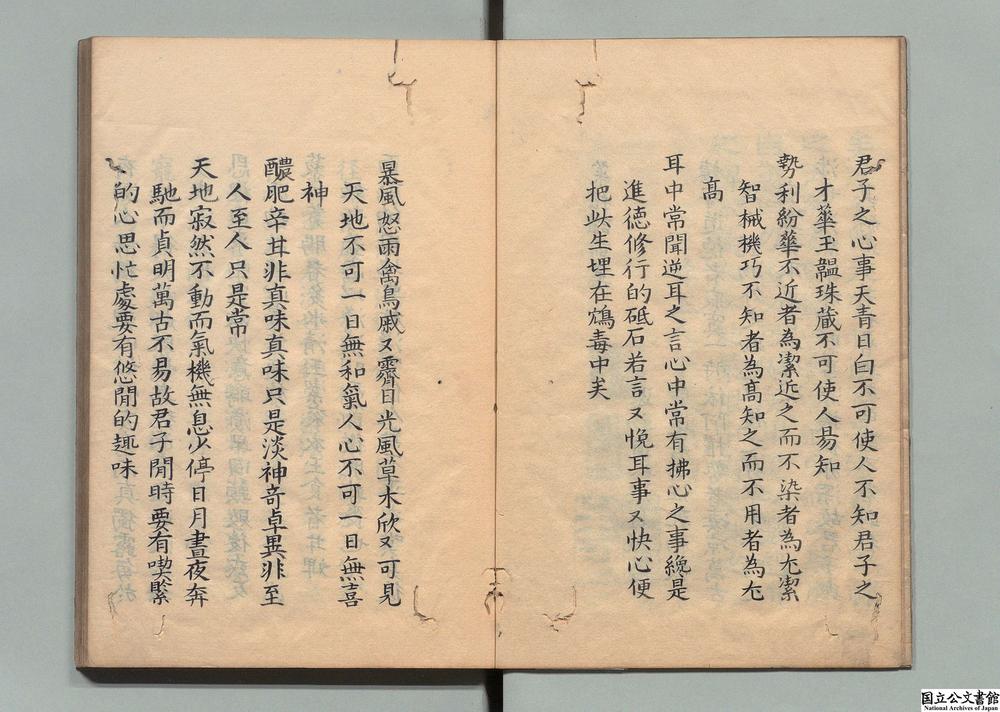 君子之心事天青日白不可使人不知君子之
才華玉韞珠蔵不可使人昜知
勢利紛華不近者為潔近之而不染者為尤潔
智械機巧不知者為髙知之而不用者為尤
髙
耳中常聞逆耳之言心中常有拂心之事纔是
進徳修行的砥石若言〻悅耳事〻快心便
把此生埋在鴆毒中矣
暴風怒雨禽鳥戚〻霽日光風草木欣〻可見
天地不可一日無和氣人心不可一日無喜
神
醲肥辛甘非真味真味只是淡神奇卓異非至
人至人只是常
天地寂然不動而氣機無息少停日月晝夜奔
馳而貞明萬古不易故君子閒時要有喫緊
的心思忙處要有悠閒的趣味
国立公文書館
National Archives of Japan